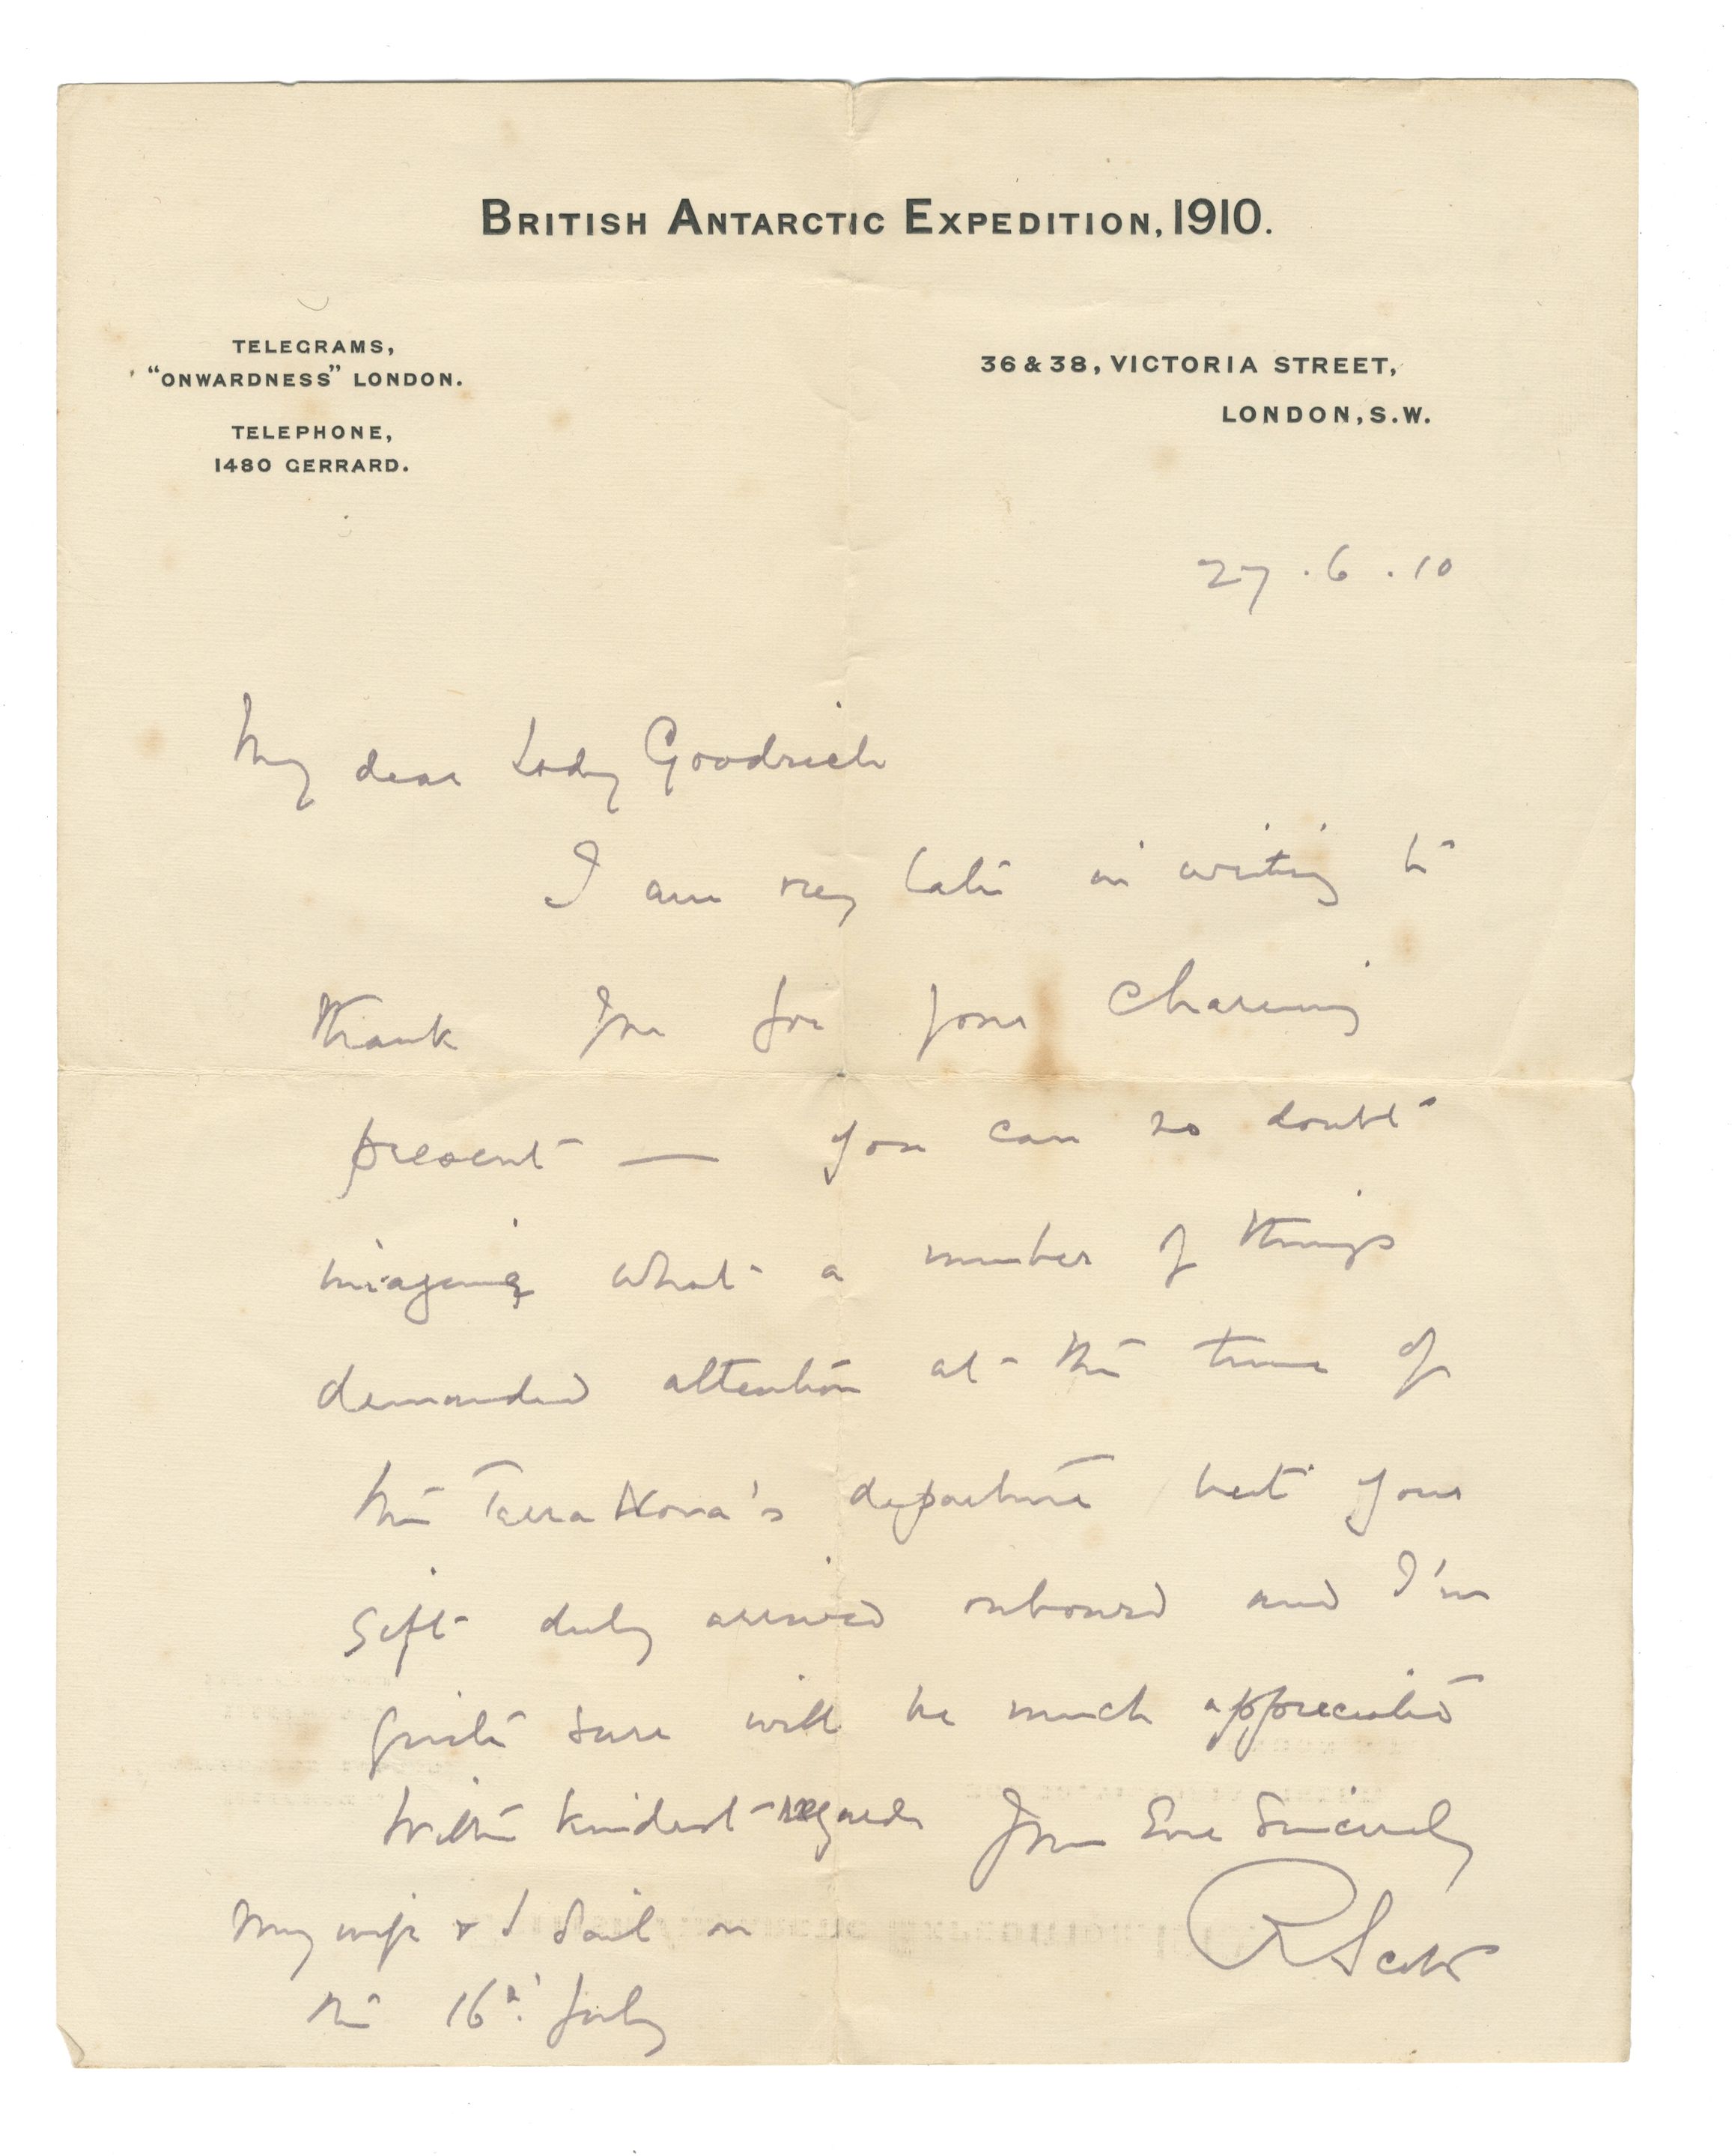 BRITISH ANTARCTIC EXPEDITION, 1910.
TELEGRAMS,
"ONWARDNESS" LONDON.
TELEPHONE,
1480 GERRARD.
36 & 38, VICTORIA STREET,
LONDON, S.W.
27.6.10
My dear Lady Goodrich
I am very late in writing to
thank you for your charming
present — you can no doubt
imagine what a number of things
demanded attention at the time of
the Terra Nova's departure but your
gift duly arrived onboard and I'm
quite sure will be much appreciated
With kindest regards Yours Sincerely
RScott
My wife & I sail on
the 16th July